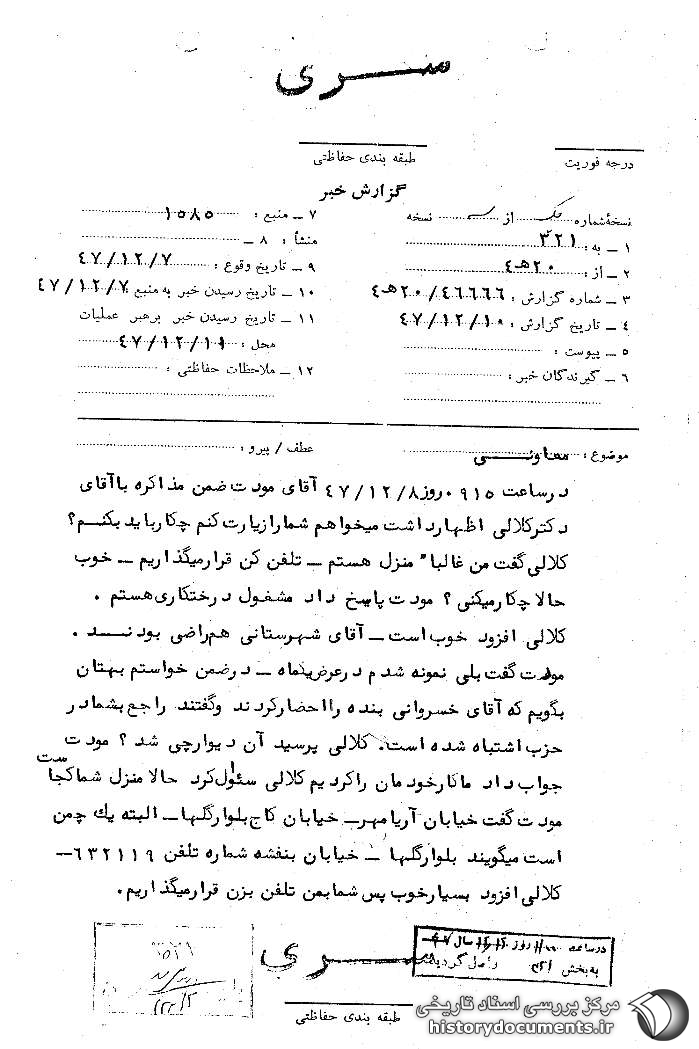 سری
درجه فوریت
طبقه بندی حفاظتی
گزارش خبر
نسخهٔ شماره یک از سه نسخه
۱ ــ به : ۳۲۱
۲ ــ از : ۲۰هـ۴
۳ ــ شماره گزارش : ۲۰/۴۶۶۶۶هـ۴
۴ ــ تاریخ گزارش : ۴۷/۱۲/۱۰
۵ ــ پیوست :
۶ ــ گیرندگان خبر :
۷ ــ منبع : ۱۵۸۵
۸ ــ منشأ :
۹ ــ تاریخ وقوع : ۴۷/۱۲/۷
۱۰ ــ تاریخ رسیدن خبر به منبع : ۴۷/۱۲/۷
۱۱ ــ تاریخ رسیدن خبر برهبر عملیات
محل : ۴۷/۱۲/۱۱
۱۲ ــ ملاحظات حفاظتی :
موضوع :
عطف / پیرو :
درساعت ۰۹۱۵ روز ۴۷/۱۲/۸ آقای مودت ضمن مذاکره باآقای
دکترکلالی اظهارداشت میخواهم شمارازیارت کنم چکاربایدبکنم؟
کلالی گفت من غالبا" منزل هستم ــ تلفن کن قرارمیگذاریم ــ خوب
حالا چکارمیکنی ؟ مودت پاسخ داد مشغول درختکاری هستم .
کلالی افزود خوب است ــ آقای شهرستانی هم راضی بودنـد .
مودت گفت بلی نمونه شدم درعرض یکماه ــ درضمن خواستم بهتان
بگویم که آقای خسروانی بنده رااحضارکردند وگفتند راجع بشمادر
حزب اشتباه شده است. کلالی پرسید آن دیوارچی شد ؟ مودت
جواب داد ماکارخودمان راکردیم کلالی سئوال کرد حالا منزل شماکجاست
مودت گفت خیابان آریامهرــ خیابان کاج بلوارگلهاــ البته یك چمن
است میگویند بلوارگلها ــ خیابان بنفشه شماره تلفن ۶۳۲۱۱۹ــ
کلالی افزود بسیارخوب پس شمابمن تلفن بزن قرارمیگذاریم.
درساعت روز سال ۴۷
به بخش ۳۲۱ واصل گردید
سری
طبقه بندی حفاظتی
مرکز بررسی اسناد تاریخی
historydocuments.ir